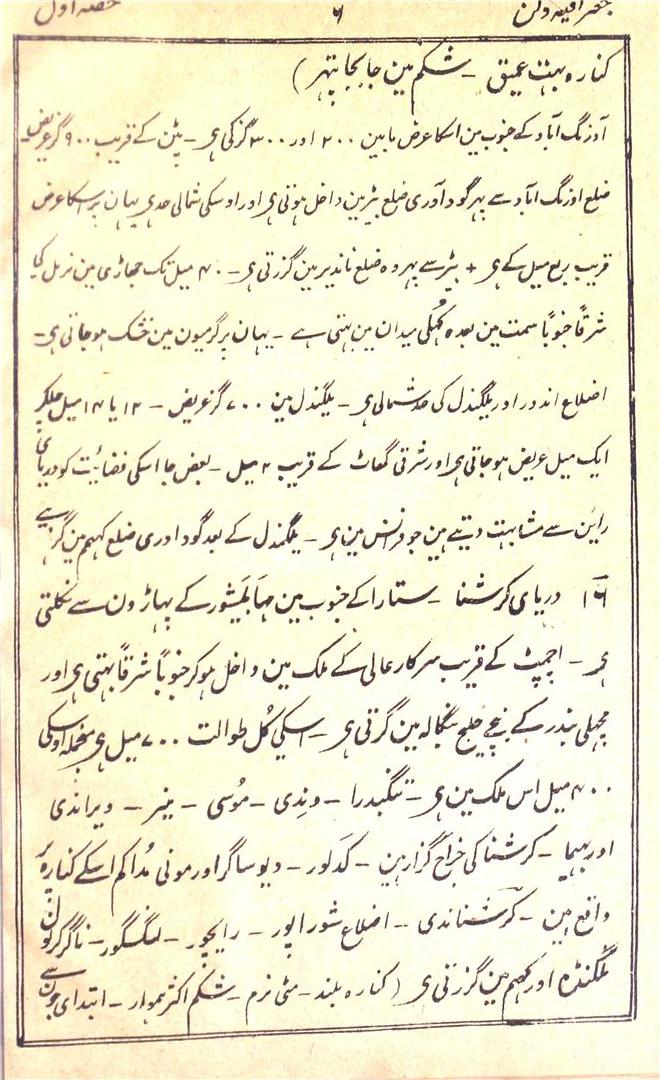 جغرافیہ دکن ۶ حصہ اول
کنارہ بہت عمیق - شکم مین جابجا پتھر )
اورنگ آباد کے جنوب مین اسکا عرض مابین ۲۰۰ اور ۳۰۰ گز کی ہی - پٹن کے قریب ۹۰۰ گز عریض -
ضلع اورنگ آباد سے پہر گوداوری ضلع بیڑ مین داخل ہوتی ہی اور اوسکی شمالی حد ہی یہان پر اسکا عرض
قریب ربع میل کے ہی + بیڑ سے پہر وہ ضلع ناندیر مین گزرتی ہی - ۴۰ میل تک جھاڑی مین نرمل کی
شرقاً جنوباً سمت مین بعدہ کُھلی میدان مین بہتی ہے - یہان پر گرمیون مین خشک ہو جاتی ہی -
اضلاع اندور اور یلگندل کی حد شمالی ہی - یلگندل مین ۷۰۰ گز عریض - ۱۲ یا ۱۴ میل چلکر
ایک میل عریض ہو جاتی ہی اور شرقی گھاٹ کے قریب ۲ میل - بعض جا اسکی فضائیت کو دریای
راین سے مشابہت دیتے ہین جو فرانس مین ہی - یلگندل کے بعد گوداوری ضلع کہمم مین گزری ہے
۱۶ دریای کرشنا - ستارا کے جنوب مین مہابلیشور کے پہاڑون سے نکلتی
ہی - اچمپٹ کے قریب سرکار عالی کے ملک مین داخل ہو کر جنوباً شرقاً بہتی ہی اور
مچہلی بندر کے نیچے خلیج بنگالہ مین گرتی ہی - اسکی کُل طوالت ۷۰۰ میل ہی منجملہ اوسکی
۴۰۰ میل اس ملک مین ہی - تنگبدرا - وندی - مُوسی - مینر - ویراندی
اور بہیما - کرشنا کی خراج گزار ہین - کدَلور - دیوساگر اور مونی مُداکم اسکے کنارہ پر
واقع ہین - کرشناندی - اضلاع شوراپور - رایچور - لنگسگور - ناگرکرنول
نلگنڈہ اور کہمم مین گزرتی ہی ( کنارہ بلند - مٹی نرم - شکم اکثر ہموار - ابتدای جون سے